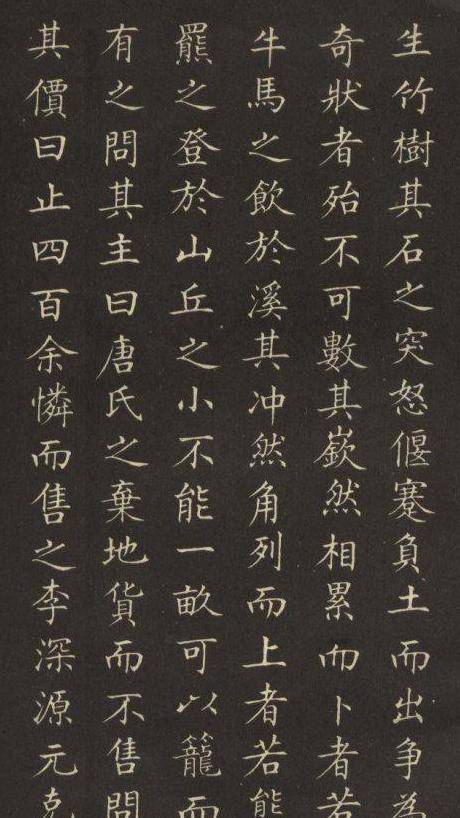 生竹樹其石之突怒偃蹇負土而出争為
奇狀者殆不可數其嶔然相累而卜者若
牛馬之飲於溪其冲然角列而上者若能
羆之登於山丘之小不能一畝可以籠而
有之問其主曰唐氏之棄地貨而不售問
其價曰止四百余憐而售之李深源元克